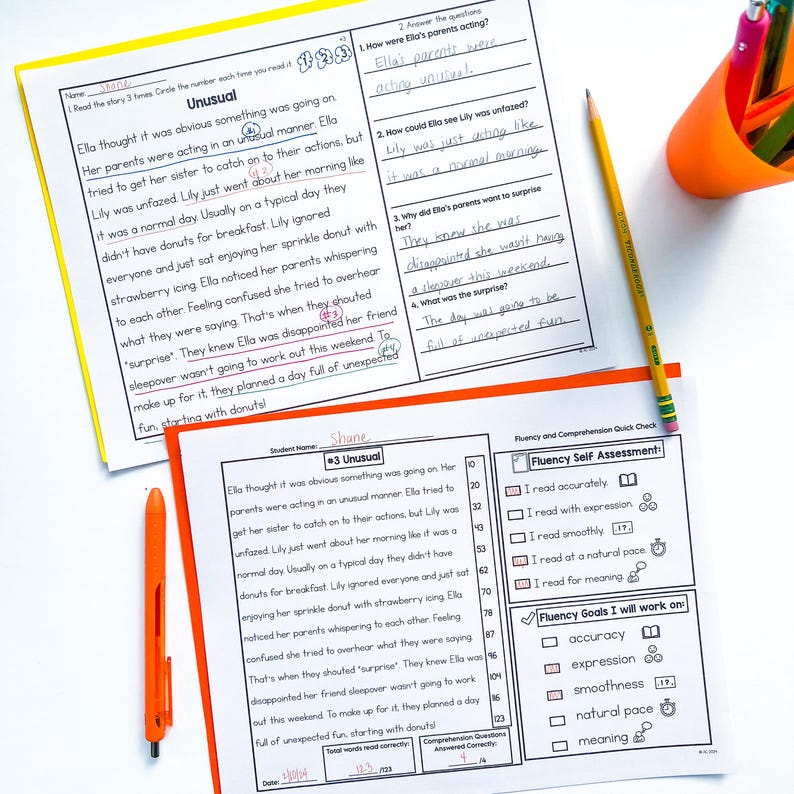 Name: Shane
1. Read the story 3 times. Circle the number each time you read it. 1 2 3
#3
Unusual
Ella thought it was obvious something was going on.
#1
Her parents were acting in an unusual manner. Ella
tried to get her sister to catch on to their actions, but
#2
Lily was unfazed. Lily just went about her morning like
it was a normal day. Usually on a typical day they
didn't have donuts for breakfast. Lily ignored
everyone and just sat enjoying her sprinkle donut with
strawberry icing. Ella noticed her parents whispering
to each other. Feeling confused she tried to overhear
what they were saying. That's when they shouted
#3
"surprise". They knew Ella was disappointed her friend
sleepover wasn't going to work out this weekend. To
#4
make up for it, they planned a day full of unexpected
fun, starting with donuts!
2. Answer the questions.
1. How were Ella's parents acting?
Ella's parents were
acting unusual.
2. How could Ella see Lily was unfazed?
Lily was just acting like
it was a normal morning.
3. Why did Ella's parents want to surprise
her?
They knew she was
disappointed she wasn't having
a sleepover this weekend.
4. What was the surprise?
The day was going to be
full of unexpected fun.
DIXON TICONDEROGA
Student Name: Shane
#3 Unusual
Ella thought it was obvious something was going on. Her 10
parents were acting in an unusual manner. Ella tried to 20
get her sister to catch on to their actions, but Lily was 32
unfazed. Lily just went about her morning like it was a 43
normal day. Usually on a typical day they didn't have 53
donuts for breakfast. Lily ignored everyone and just sat 62
enjoying her sprinkle donut with strawberry icing. Ella 70
noticed her parents whispering to each other. Feeling 78
confused she tried to overhear what they were saying. 87
That's when they shouted "surprise". They knew Ella was 96
disappointed her friend sleepover wasn't going to work 104
out this weekend. To make up for it, they planned a day 116
full of unexpected fun, starting with donuts! 123
Date: 2/10/24
Total words read correctly:
123 /123
Comprehension Questions
Answered Correctly:
4 /4
Fluency and Comprehension Quick Check
Fluency Self Assessment:
I read accurately.
I read with expression.
I read smoothly. .!?.
I read at a natural pace.
I read for meaning.
Fluency Goals I will work on:
accuracy
expression
smoothness .!?.
natural pace
meaning
© AC 2024